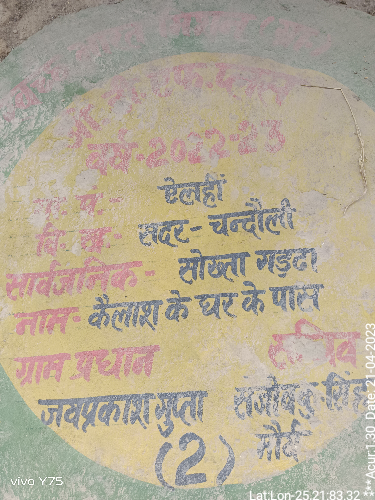 वर्ष-2022-23
ग्रा. पं.- ऐलहीं
वि. ख.- सदर-चन्दौली
सार्वजनिक- सोख्ता गड्ढा
नाम- कैलाश के घर के पास
ग्राम प्रधान सचिव
जयप्रकाश गुप्ता
मौर्य
(2)
vivo Y75
Lat:Lon-25.21:83.32
***Acur:1.30 Date:21-04-2023